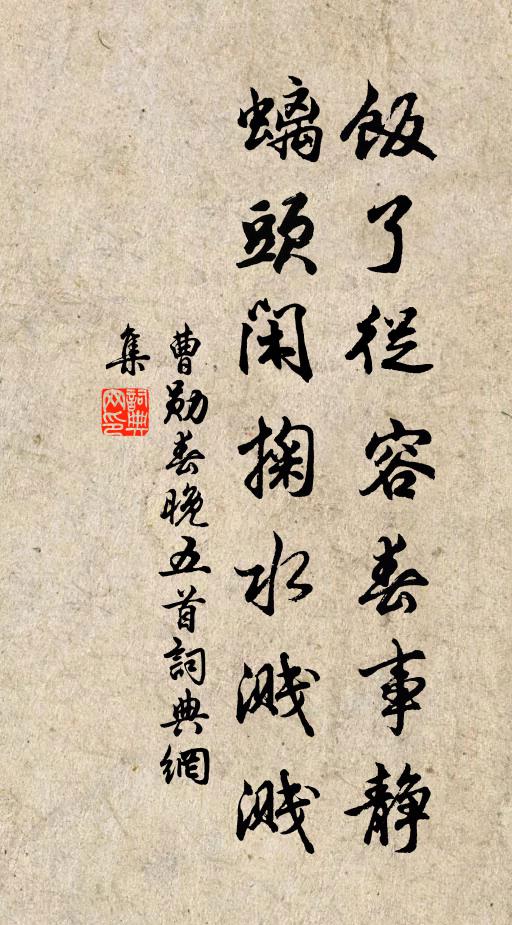 飯了從容春事静
螭頭閑掬水濺濺
曹勛春晚五首詞典網
集
詞典
网印